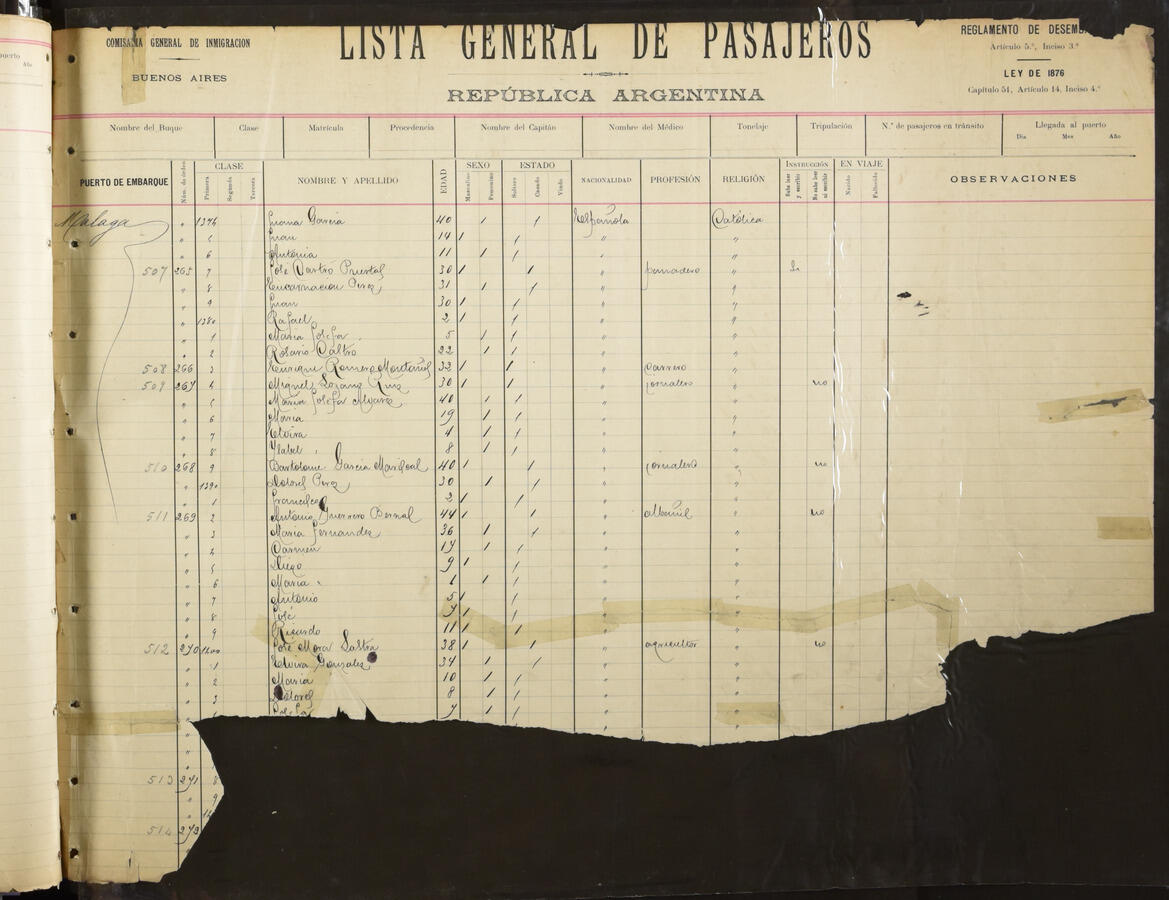 COMISARÍA GENERAL DE INMIGRACION
BUENOS AIRES
LISTA GENERAL DE PASAJEROS
REPÚBLICA ARGENTINA
REGLAMENTO DE DESEMB
Artículo 5.º, Inciso 3.º
LEY DE 1876
Capítulo 51, Artículo 14, Inciso 4.º
Nombre del Buque Clase Matrícula Procedencia Nombre del Capitán Nombre del Médico Tonelaje Tripulación N.º de pasajeros en tránsito Llegada al puerto
Dia Mes Año
PUERTO DE EMBARQUE Núm. de orden CLASE Primera Segunda Tercera NOMBRE Y APELLIDO EDAD SEXO Masculino Femenino ESTADO Soltero Casado Viudo NACIONALIDAD PROFESIÓN RELIGIÓN INSTRUCCIÓN Sabe leer y escribir No sabe leer ni escribir EN VIAJE Nacido Fallecido OBSERVACIONES
Malaga " 1376 Juana Garcia 40 / / Española Católica
" 5 Juan 14 / / " "
" 6 Antonia 11 / / " "
507 265 7 José Castro 30 / / " "
" 8 Encarnacion Perez 31 / / " "
" 9 Juan 30 / / " "
" 1380 Rafael 2 / / " "
" 1 Maria Josefa 5 / / " "
" 2 Rosario Castro 22 / / " "
508 266 3 Enrique Romero Montañés 32 / / " Carrero "
509 267 4 Miguel Lozano Ruiz 30 / / " jornalero " no
" 5 Maria Josefa Alvarez 40 / / " "
" 6 Maria 19 / / " "
" 7 Elvira 4 / / " "
" 8 Isabel " 8 / / " "
510 268 9 Bartolome Garcia 40 / / " jornalero " no
" 1390 Dolores Perez 30 / / " "
" 1 Francisco 2 / / " "
511 269 2 Antonio Guerrero Bernal 44 / / " albañil " no
" 3 Maria Fernandez 36 / / " "
" 4 Carmen 17 / / " "
" 5 Diego 9 / / " "
" 6 Maria " 6 / / " "
" 7 Antonio 5 / / " "
" 8 José 7 / / " "
" 9 Ricardo 11 / / " "
512 270 1400 José Mora 38 / / " agricultor " no
" 1 Elvira Gonzalez 34 / / " "
" 2 Maria 10 / / " "
" 3 Dolores 8 / / " "
" Josefa 7 / / " "
513 271 8
" 9
514 272